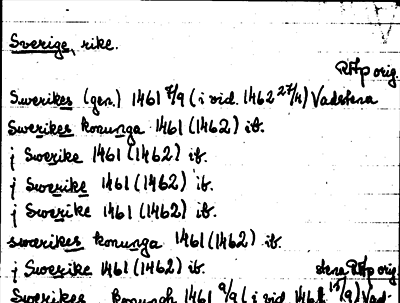 Sverige, rike.
RAp orig.
Swerikes (gen.) 1461 7/9 (i vid. 1462 27/4) Vadstena
Swerikes konunga 1461 (1462) ib.
j Swerike 1461 (1462) ib.
j Swerike 1461 (1462) ib.
j Swerike 1461 (1462) ib.
swerikes konunga 1461 (1462) ib.
j Swerike 1461 (1462) ib. stena RAp orig.
Swerikes konungh 1461 9/9 (i vid. Vad-